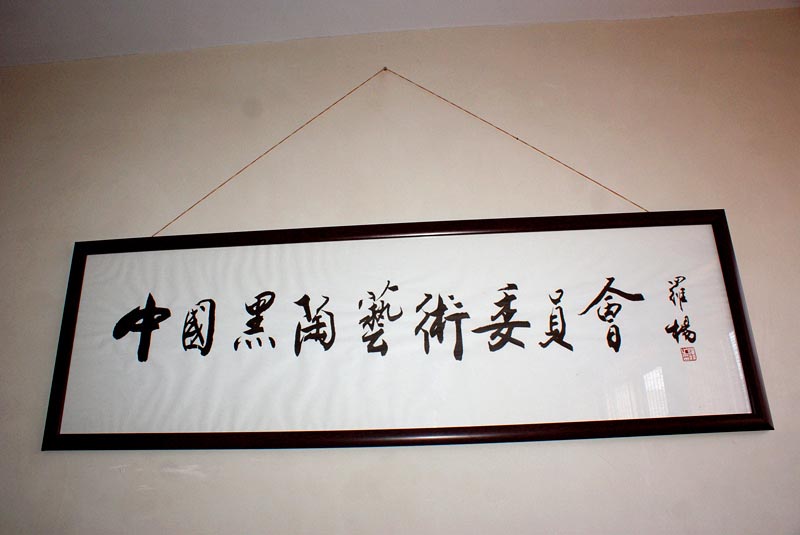 中國黑陶藝術委員會
羅楊